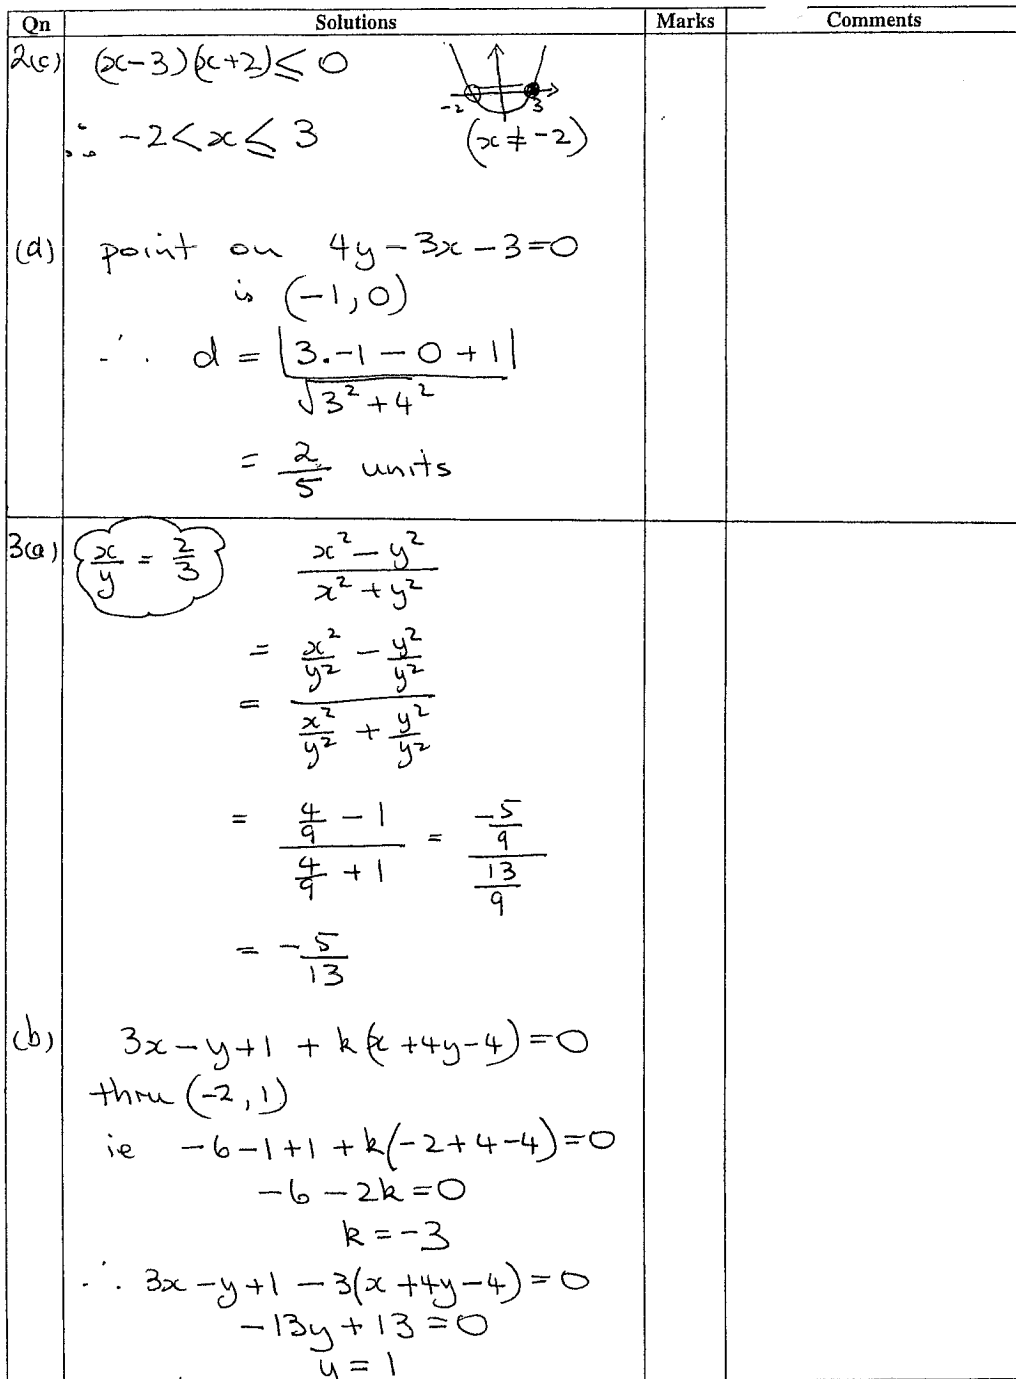 Qn Solutions Marks Comments
2(c) (x-3)(x+2) ≤ 0
-2 3
∴ -2 < x ≤ 3 (x ≠ -2)
(d) point on 4y - 3x - 3 = 0
is (-1, 0)
∴ d = |3.-1 - 0 + 1| / √3² + 4²
= 2/5 units
3(a) x/y = 2/3 x² - y² / x² + y²
= x²/y² - y²/y²
= x²/y² + y²/y²
= 4/9 - 1 / 4/9 + 1 = -5/9 / 13/9
= -5/13
(b) 3x - y + 1 + k(x + 4y - 4) = 0
thru (-2, 1)
ie -6 - 1 + 1 + k(-2 + 4 - 4) = 0
-6 - 2k = 0
k = -3
∴ 3x - y + 1 - 3(x + 4y - 4) = 0
-13y + 13 = 0
y = 1